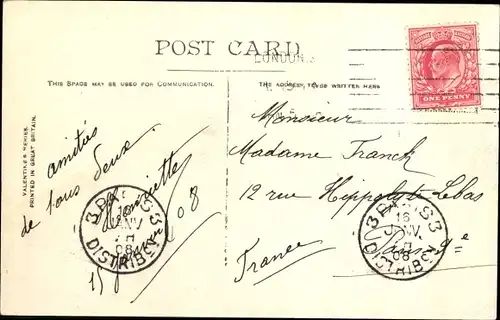 POST CARD
LONDON.
THIS SPACE MAY BE USED FOR COMMUNICATION.
THE ADDRESS TO BE WRITTEN HERE
ONE PENNY
VALENTINE'S SERIES.
PRINTED IN GREAT BRITAIN.
amitiés
de tous deux
Henriette
08
15
Monsieur
Madame Franck
12 rue Hippolyte Lebas
Paris 9e
France
3 PARIS 3
16
JANV
08
DISTRIBÉON
3 PARIS 3
16
JANV
08
DISTRIBÉON